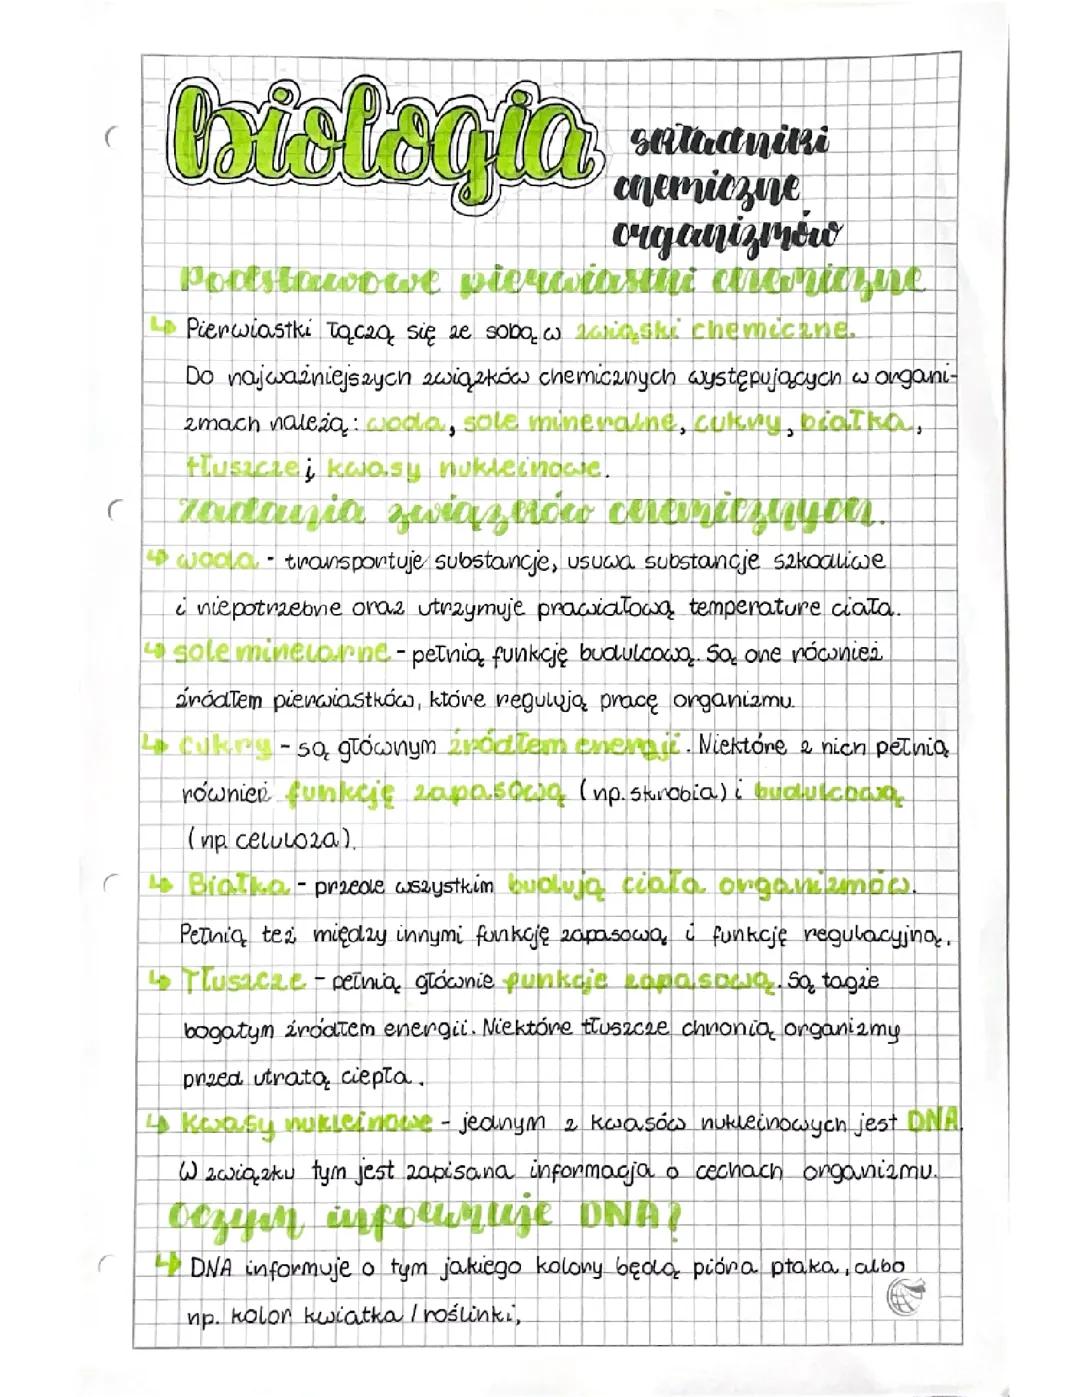 biologia
składniki
chemiczne
organizmów
Podstawowe pierwiastki chemiczne
↳ Pierwiastki łączą się ze sobą w związki chemiczne.
Do najważniejszych związków chemicznych występujących w organi-
zmach należą: woda, sole mineralne, cukry, białka,
tłuszcze i kwasy nukleinowe.
Zadania związków chemicznych.
↳ woda - transportuje substancje, usuwa substancje szkodliwe
i niepotrzebne oraz utrzymuje prawidłową temperature ciała.
↳ sole minelarne - pełnią funkcję budulcową. Są one również
źródłem pierwiastków, które regulują pracę organizmu.
↳ Cukry - są głównym źródłem energii. Niektóre z nich pełnią
również funkcję zapasową (np. skrobia) i budulcową
(np. celuloza).
↳ Białka - przede wszystkim budują ciała organizmów.
Pełnią też między innymi funkcję zapasową i funkcję regulacyjną.
↳ Tłuszcze - pełnią głównie funkcje zapasową. Są tagże
bogatym źródłem energii. Niektóre tłuszcze chronią organizmy
przed utratą ciepła.
↳ Kwasy nukleinowe - jednym z kwasów nukleinowych jest DNA.
W związku tym jest zapisana informacja o cechach organizmu.
Oczym informuje DNA?
↳ DNA informuje o tym jakiego kolory będą pióra ptaka, albo
np. kolor kwiatka / roślinki,